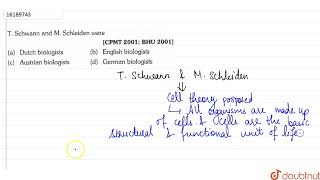 16189743
T. Schwann and M. Schleiden were
[CPMT 2001; BHU 2001]
(a) Dutch biologists (b) English biologists
(c) Austrian biologists (d) German biologists
T. Schwann & M. Schleiden
Cell theory proposed
↳ All organisms are made up
of cells & cells are the basic
structural & functional unit of life.
doubtnut